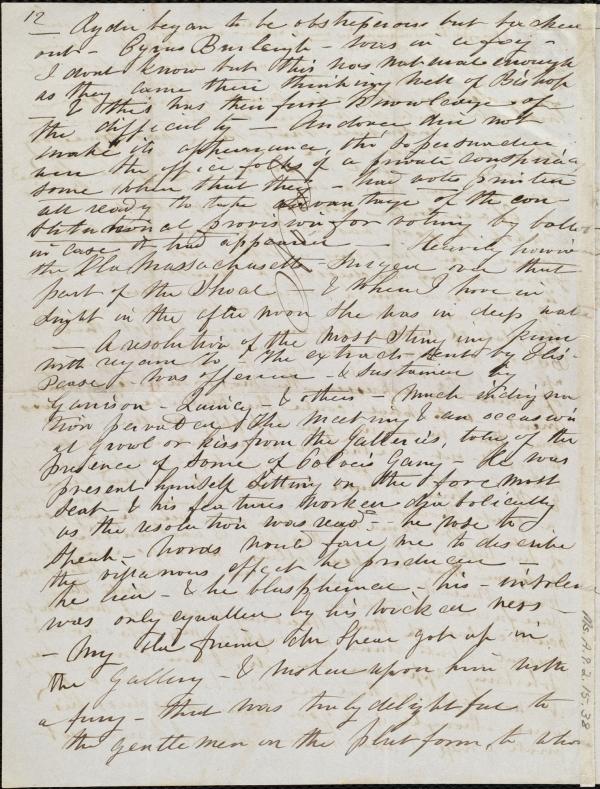 12
— Ryder began to be obstreperous but
out — Cyrus Burleigh — was in
I dont know but this was natural enough
as they came their thinking well of Bishop
— & this was their first knowledge of
the difficulty — Andover did not
make its appearance, tho' so persuaded
were the office folks of a private conspiracy
some where that they — had votes printed
all ready to take advantage of the con-
stitutional provision for voting by ballot
in case it had appeared — Heavily
the Old Massachusetts over that
part of the Shoal — & when I hove in
sight in the after noon she was in deep
— A resolution of the most stinging kind
with regard to — the extracts by
Pease was offered — & sustained by
Garrison — Quincy — & others — much indigna
tion pervaded the meeting & an occasion
al growl or hiss from the galleries, told of the
presence of some of Gang — He was
present himself sitting on the fore most
seat — & his features worked diabolically
as the resolution was read — he rose to
speak — words would fail me to describe
the effect he produced —
he lied — & he blasphemed — his — insolence
was only equalled by his wicked ness —
— My old friend Spear got up in
the Gallery — & upon him with
a fury — that was truly delightful to
the gentlemen on the platform, to
Ms. A. 9. 2. 15. 38